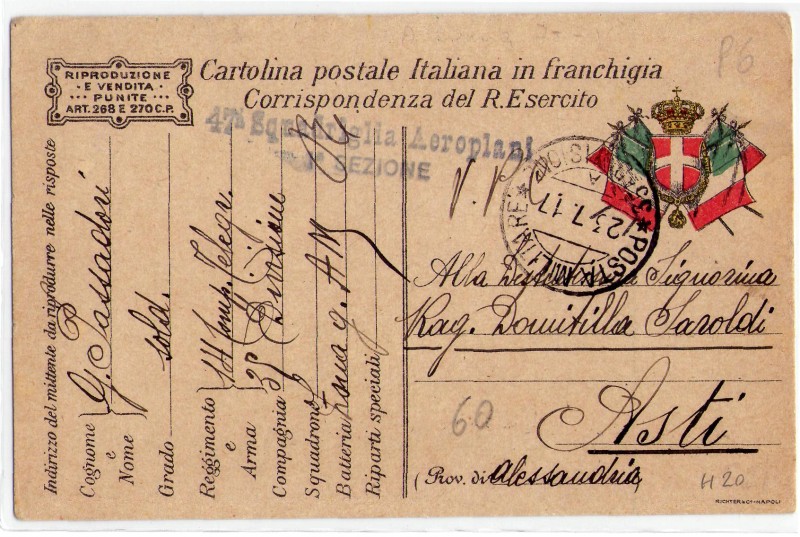 P6
RIPRODUZIONE
E VENDITA
PUNITE
ART. 268 E 270 C.P.
Cartolina postale Italiana in franchigia
Corrispondenza del R. Esercito
47a Squadriglia Aeroplani
SEZIONE
Indirizzo del mittente da riprodurre nelle risposte
Cognome e Nome G. Passadori
Grado sold.
Reggimento e Arma
Compagnia Divisione
Squadrone
Batteria
Riparti speciali
POSTA MILITARE
DIVISIONE
23.7.17
Alla Signorina
Rag. Domitilla Saroldi
60
Asti
(Prov. di Alessandria)
H20
RICHTER & Co - NAPOLI